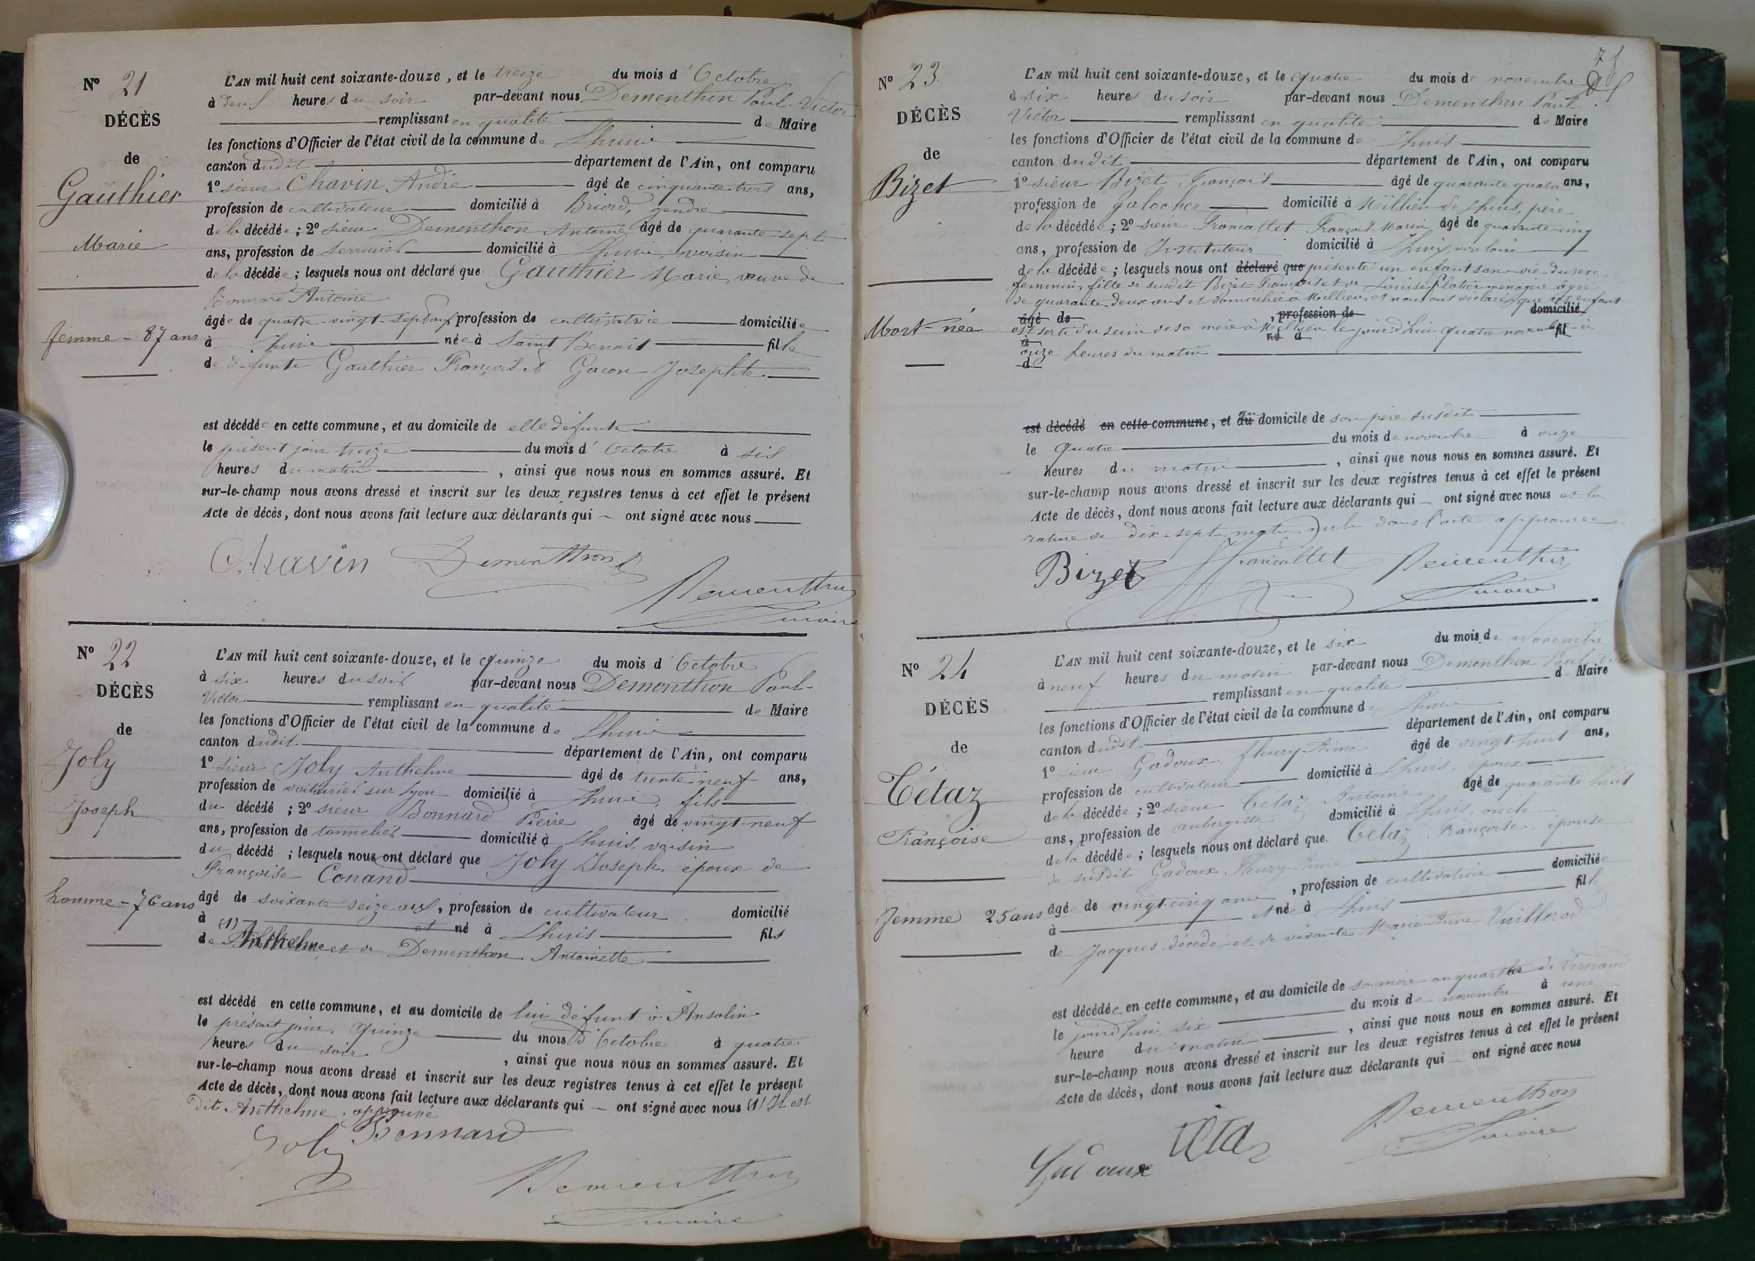 N° 21
DÉCÈS
de
Gauthier
Marie
femme - 87 ans
L'AN mil huit cent soixante-douze, et le treize du mois d'Octobre
à neuf heures du soir par-devant nous Dementhon Paul-Victor
remplissant en qualité de Maire
les fonctions d'Officier de l'état civil de la commune de Lhuis
canton dudit département de l'Ain, ont comparu
1° sieur Chavin André âgé de cinquante-trois ans,
profession de cultivateur domicilié à Briord, gendre
de la décédée ; 2° sieur Dementhon Antoine âgé de quarante-sept
ans, profession de domicilié à Lhuis, voisin
de la décédée ; lesquels nous ont déclaré que Gauthier Marie, veuve de
Bonnard Antoine
âgée de quatre-vingt-sept ans, profession de cultivatrice domiciliée
à Lhuis née à Saint Benoit fille
de défunts Gauthier François et Gacon Josephte
est décédée en cette commune, et au domicile de elle défunte
le présent jour treize du mois d'Octobre à six
heures du matin, ainsi que nous nous en sommes assuré. Et
sur-le-champ nous avons dressé et inscrit sur les deux registres tenus à cet effet le présent
Acte de décès, dont nous avons fait lecture aux déclarants qui ont signé avec nous
Chavin Dementhon
Dementhon
maire
N° 22
DÉCÈS
de
Joly
Joseph
homme - 76 ans
L'AN mil huit cent soixante-douze, et le quinze du mois d'Octobre
à six heures du soir par-devant nous Dementhon Paul-
Victor remplissant en qualité de Maire
les fonctions d'Officier de l'état civil de la commune de Lhuis
canton dudit département de l'Ain, ont comparu
1° sieur Joly Anthelme âgé de trente-neuf ans,
profession de voiturier sur Lyon domicilié à Lhuis, fils
du décédé ; 2° sieur Bonnard Pierre âgé de vingt-neuf
ans, profession de tonnelier domicilié à Lhuis, voisin
du décédé ; lesquels nous ont déclaré que Joly Joseph, époux de
Françoise Conand
âgé de soixante seize ans, profession de cultivateur domicilié
à (1) et né à Lhuis fils
de Anthelme, et de Dementhon Antoinette
est décédé en cette commune, et au domicile de lui défunt à Ansolin
le présent jour quinze du mois d'Octobre à quatre
heures du soir, ainsi que nous nous en sommes assuré. Et
sur-le-champ nous avons dressé et inscrit sur les deux registres tenus à cet effet le présent
Acte de décès, dont nous avons fait lecture aux déclarants qui ont signé avec nous (1) Il est
dit Anthelme approuvé
Joly Bonnard
Dementhon
maire
N° 23
DÉCÈS
de
Bizet
Mort-née
L'AN mil huit cent soixante-douze, et le quatre du mois de novembre
à six heures du soir par-devant nous Dementhon Paul
Victor remplissant en qualité de Maire
les fonctions d'Officier de l'état civil de la commune de Lhuis
canton dudit département de l'Ain, ont comparu
1° sieur Bizet François âgé de quarante quatre ans,
profession de galocher domicilié à Millieu de Lhuis, père
de la décédée ; 2° sieur Francillet François Marin âgé de quarante cinq
ans, profession de Instituteur domicilié à Lhuis, voisin
de la décédée ; lesquels nous ont déclaré que présenté un enfant sans vie du sexe
féminin, fille de susdit Bizet François et de Louise ménagère âgée
de quarante-deux ans et domiciliée à Millieu, et nous ont déclaré que cet enfant
âgé de , profession de domicilié
est sorti du sein de sa mère à Millieu le jourd'hui quatre novembre à
à né à fil
onze heures du matin
d
est décédé en cette commune, et au domicile de son père susdit
le quatre du mois de novembre à onze
heures du matin, ainsi que nous nous en sommes assuré. Et
sur-le-champ nous avons dressé et inscrit sur les deux registres tenus à cet effet le présent
Acte de décès, dont nous avons fait lecture aux déclarants qui ont signé avec nous et la
rature de dix-sept mots nuls dans l'acte approuvée
Bizet Francillet Dementhon
maire
N° 24
DÉCÈS
de
Tétaz
Françoise
femme 25 ans
L'AN mil huit cent soixante-douze, et le six du mois de novembre
à neuf heures du matin par-devant nous Dementhon Paul
remplissant en qualité de Maire
les fonctions d'Officier de l'état civil de la commune de Lhuis
canton dudit département de l'Ain, ont comparu
1° sieur Gadoux Fleury Aimé âgé de vingt huit ans,
profession de cultivateur domicilié à Lhuis, époux
de la décédée ; 2° sieur Tétaz Antoine âgé de quarante huit
ans, profession de aubergiste domicilié à Lhuis, oncle
de la décédée ; lesquels nous ont déclaré que Tétaz Françoise, épouse
de susdit Gadoux Fleury Aimé
âgée de vingt cinq ans, profession de cultivatrice domiciliée
à et née à Lhuis fille
de Jacques, décédé et de vivante Marie Anne Vuillerod
est décédée en cette commune, et au domicile de sa mère au quartier de
le jourd'hui six du mois de novembre à une
heure du matin, ainsi que nous nous en sommes assuré. Et
sur-le-champ nous avons dressé et inscrit sur les deux registres tenus à cet effet le présent
Acte de décès, dont nous avons fait lecture aux déclarants qui ont signé avec nous
Gadoux Tétaz Dementhon
maire